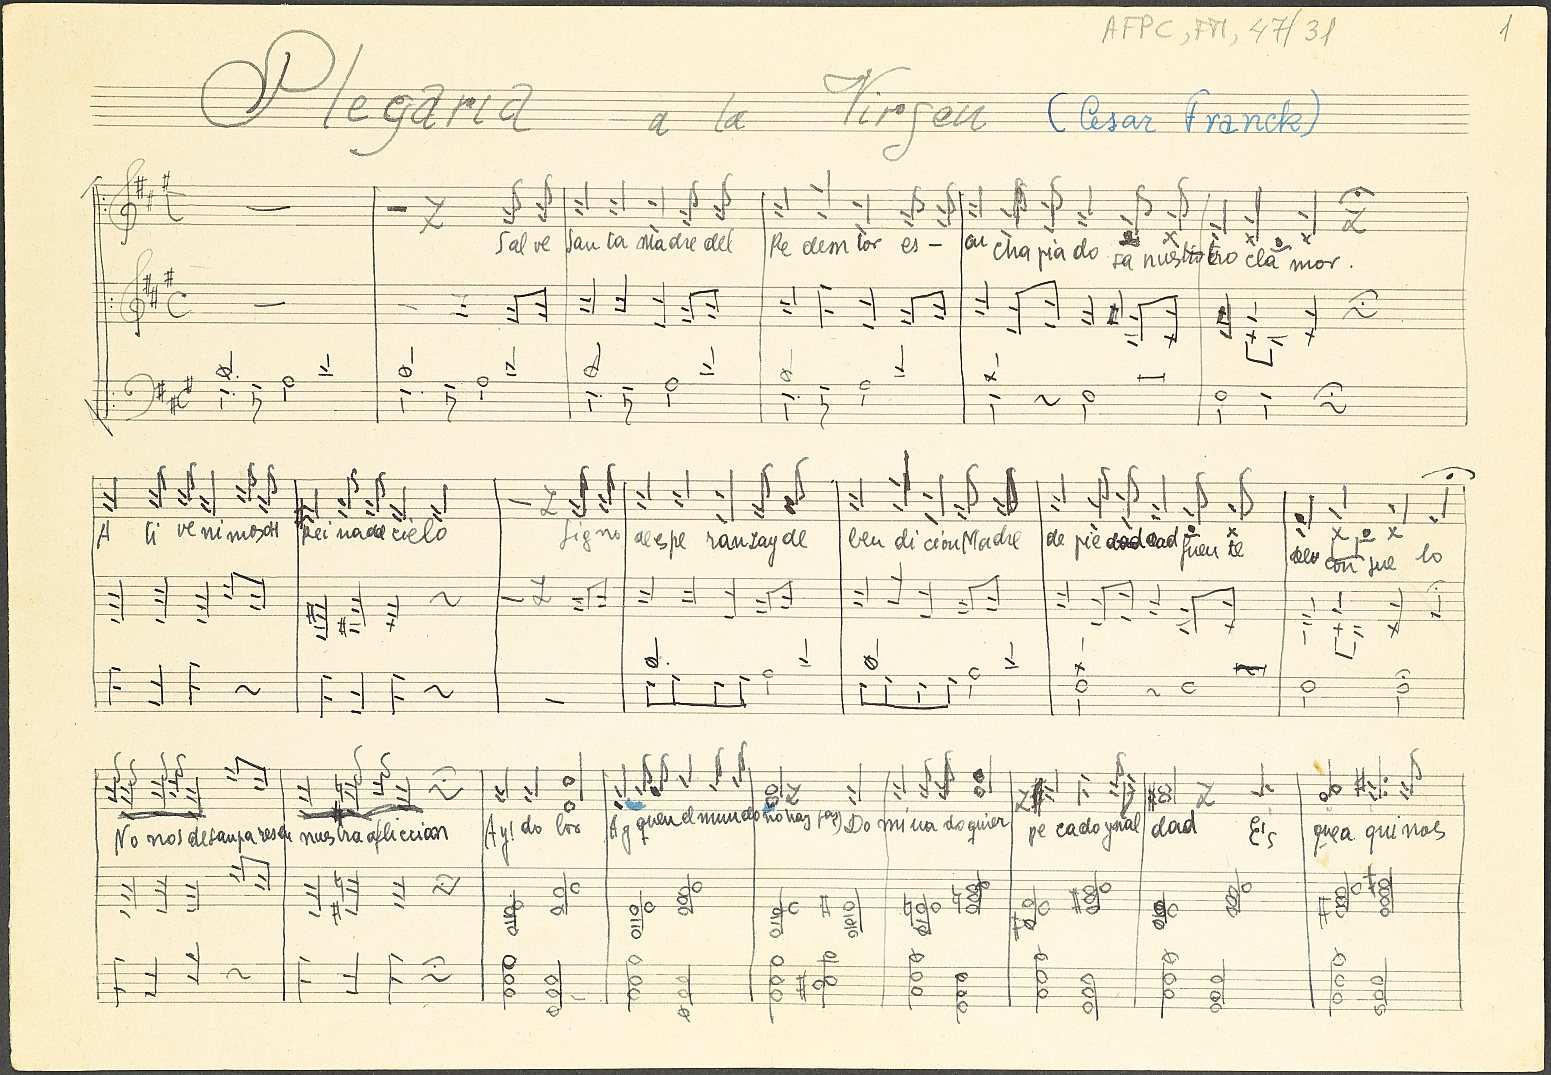 AFPC, FM, 47/31
1
Plegaria a la Virgen (Cesar Franck)
Salve San ta Madre del Re dem tor es - cu cha pia do sa nuestro cla mor.
A ti ve ni mos Reina de cielo Signo de espe ranza y de ben di ción Madre de pie dad fuen te con sue lo
No nos desampares en nuestra aflicción Ay! do lor Ay quen el mundo no hay Do mi na do quier pe cado y mal dad Es que a qui nos